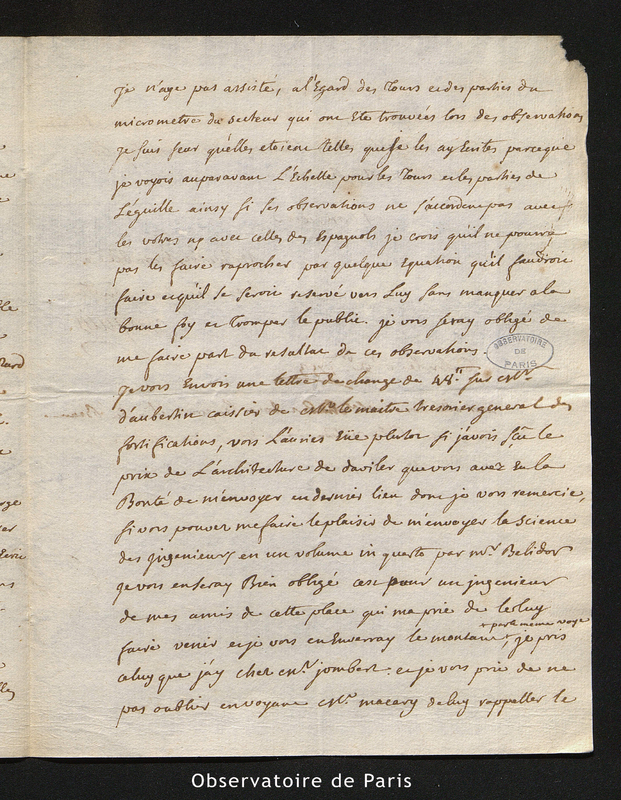 je n'aye pas assisté, a l'Egard des Tours et des parties du
micrometre du secteur qui ont Ete trouvées lors des observations
je suis seur quelles etoient telles que je les ay Ecrites parceque
je voyois auparavant L'Echelle pour les Tours et les parties de
L'éguille ainsy si ses observations ne s'accordent pas avec
les votres ny avec celles des Espagnols je crois qu'il ne pourra
pas les faire raprocher par quelque Equation qu'il faudroit
faire et qu'il se seroit reservé vers Luy sans manquer a la
bonne foy et Tromper le public. je vous seray obligé de
me faire part du resultat de ces observations.
OBSERVATOIRE DE PARIS
je vous Envois une lettre de change de 48ᵗᵗ sur Mr.
d'aubertin caissier de Mr. le maitre Tresorier general des
fortifications, vous L'auriés Eüe plutot si j'avois sçu le
prix de L'architecture de daviler que vous avez Eu la
Bonté de m'envoyer en dernier lieu dont je vous remercie,
si vous pouvez me faire le plaisir de m'envoyer la Science
des jngenieurs en un volume in quarto par mr. Belidor
je vous en seray Bien obligé c'est pour un jngenieur
de mes amis de cette place qui ma prié de le luy
faire venir et je vous en Enverray le montant + par la même voye
, je pris
celuy que j'ay chez Mr. jombert. et je vous prie de ne
pas oublier en voyant Mr. macary de luy rappeller le
Observatoire de Paris